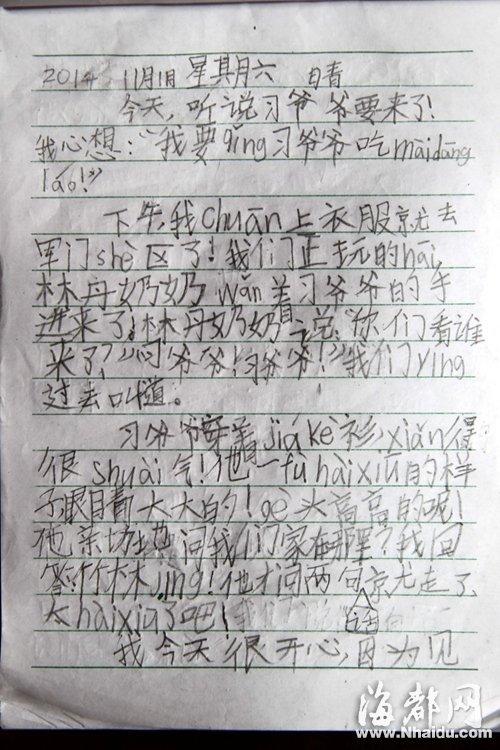 2014 11月1日 星其月六 日青
今天，听说习爷爷要来了！
我心想：“我要qǐng习爷爷吃màidāng
láo！”
下午，我chuān上衣服就去
军门shè区了！我们正玩的hāi，
林丹奶奶wǎn着习爷爷的手
进来了，林丹奶奶说“你们看谁
来了？”“习爷爷！习爷爷！”我们yíng
过去叫道。
习爷爷穿着jiákè衫，xiǎn得
很shuài气！他一fù hàixiū的样
子眼睛大大的！gè头高高的呢！
他亲切地问我们家在哪里？我回
答：竹林jìng！他才问两句就走了
话
太hàixiū了吧！
我今天很开心，因为见
海都网
www.Nhaidu.com